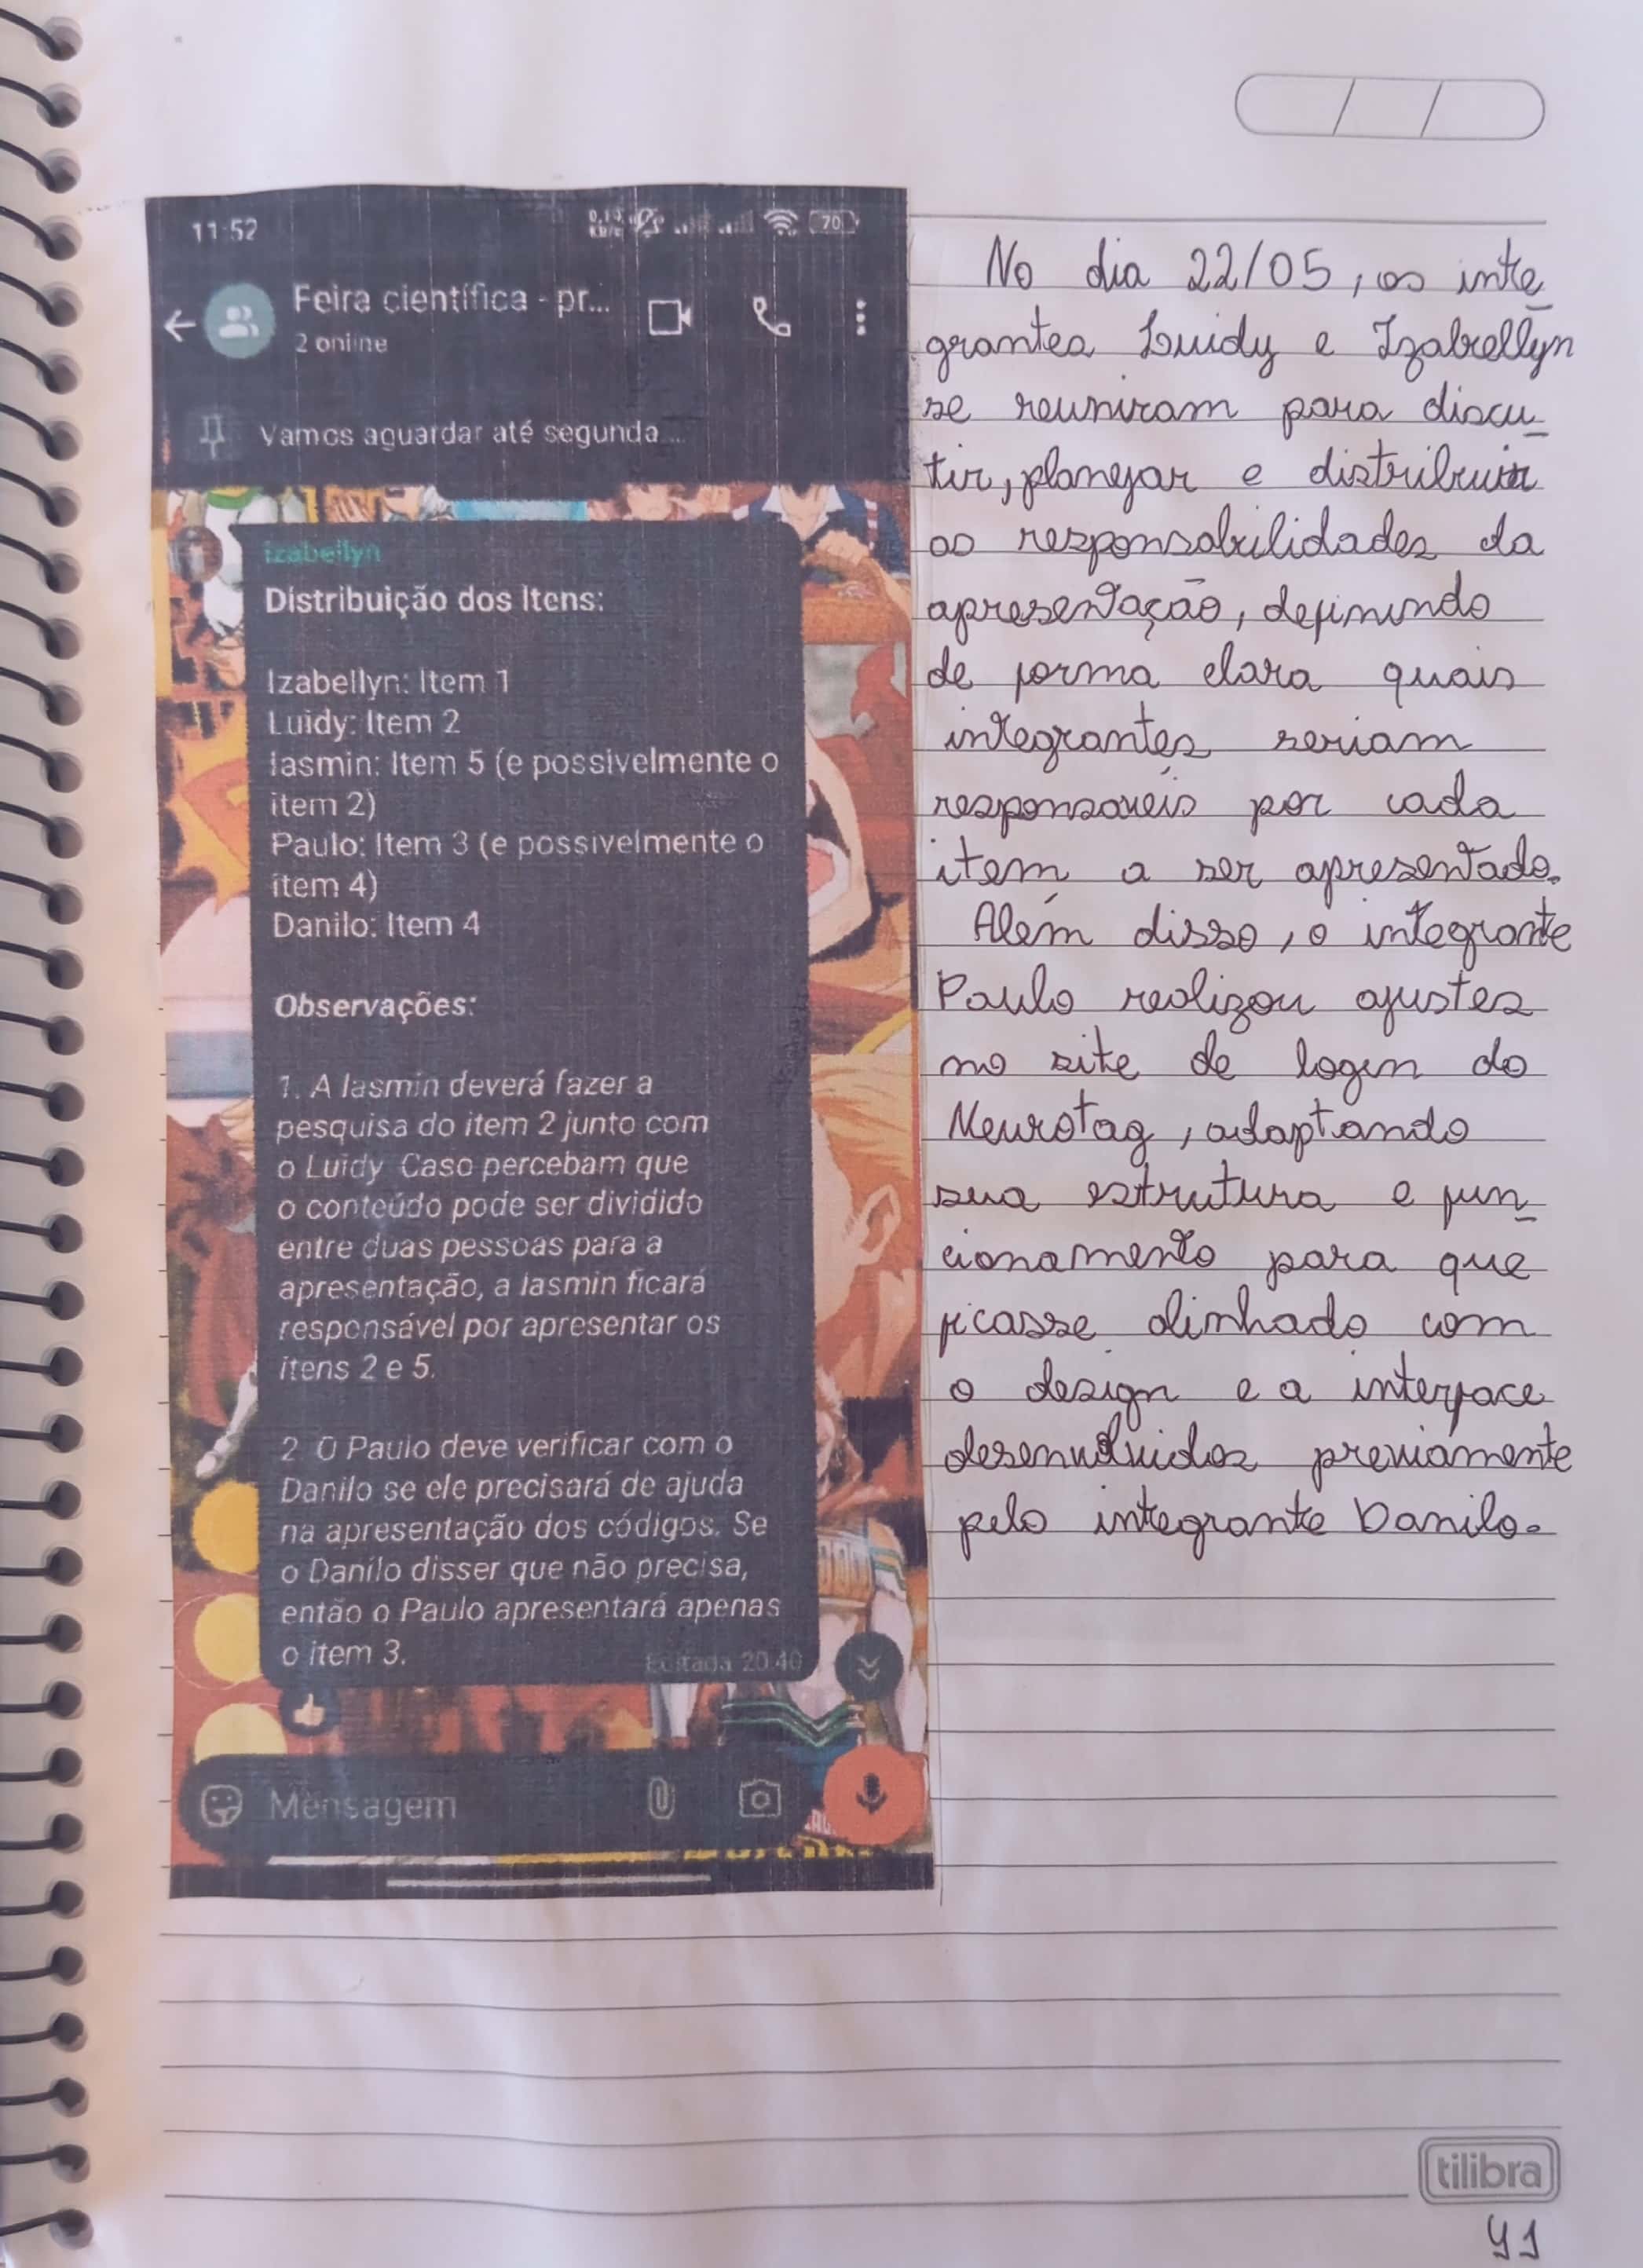 11:52
70
Feira científica - pr...
2 online
Vamos aguardar até segunda...
izabellyn
Distribuição dos Itens:
Izabellyn: Item 1
Luidy: Item 2
Iasmin: Item 5 (e possivelmente o
item 2)
Paulo: Item 3 (e possivelmente o
item 4)
Danilo: Item 4
Observações:
1. A Iasmin deverá fazer a
pesquisa do item 2 junto com
o Luidy Caso percebam que
o conteúdo pode ser dividido
entre duas pessoas para a
apresentação, a Iasmin ficará
responsável por apresentar os
itens 2 e 5.
2 O Paulo deve verificar com o
Danilo se ele precisará de ajuda
na apresentação dos códigos. Se
o Danilo disser que não precisa,
então o Paulo apresentará apenas
o item 3.
Editada 20:40
Mensagem
No dia 22/05, os inte
grantes Luidy e Izabellyn
se reuniram para discu
tir, planejar e distribuir
as responsabilidades da
apresentação, definindo
de forma clara quais
integrantes seriam
responsáveis por cada
item a ser apresentado.
Além disso, o integrante
Paulo realizou ajustes
no site de login do
Neurotag, adaptando
sua estrutura e fun
cionamento para que
ficasse alinhado com
o design e a interface
desenvolvidos previamente
pelo integrante Danilo.
tilibra
41